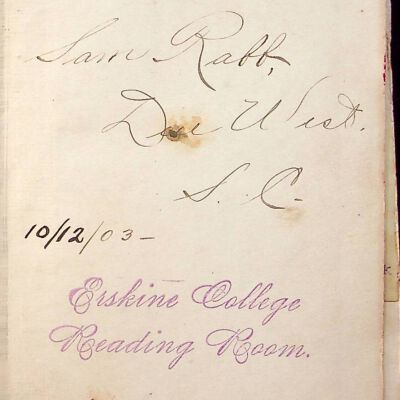 Sam Rabb,
Due West.
S. C.
10/12/03-
Erskine College
Reading Room.